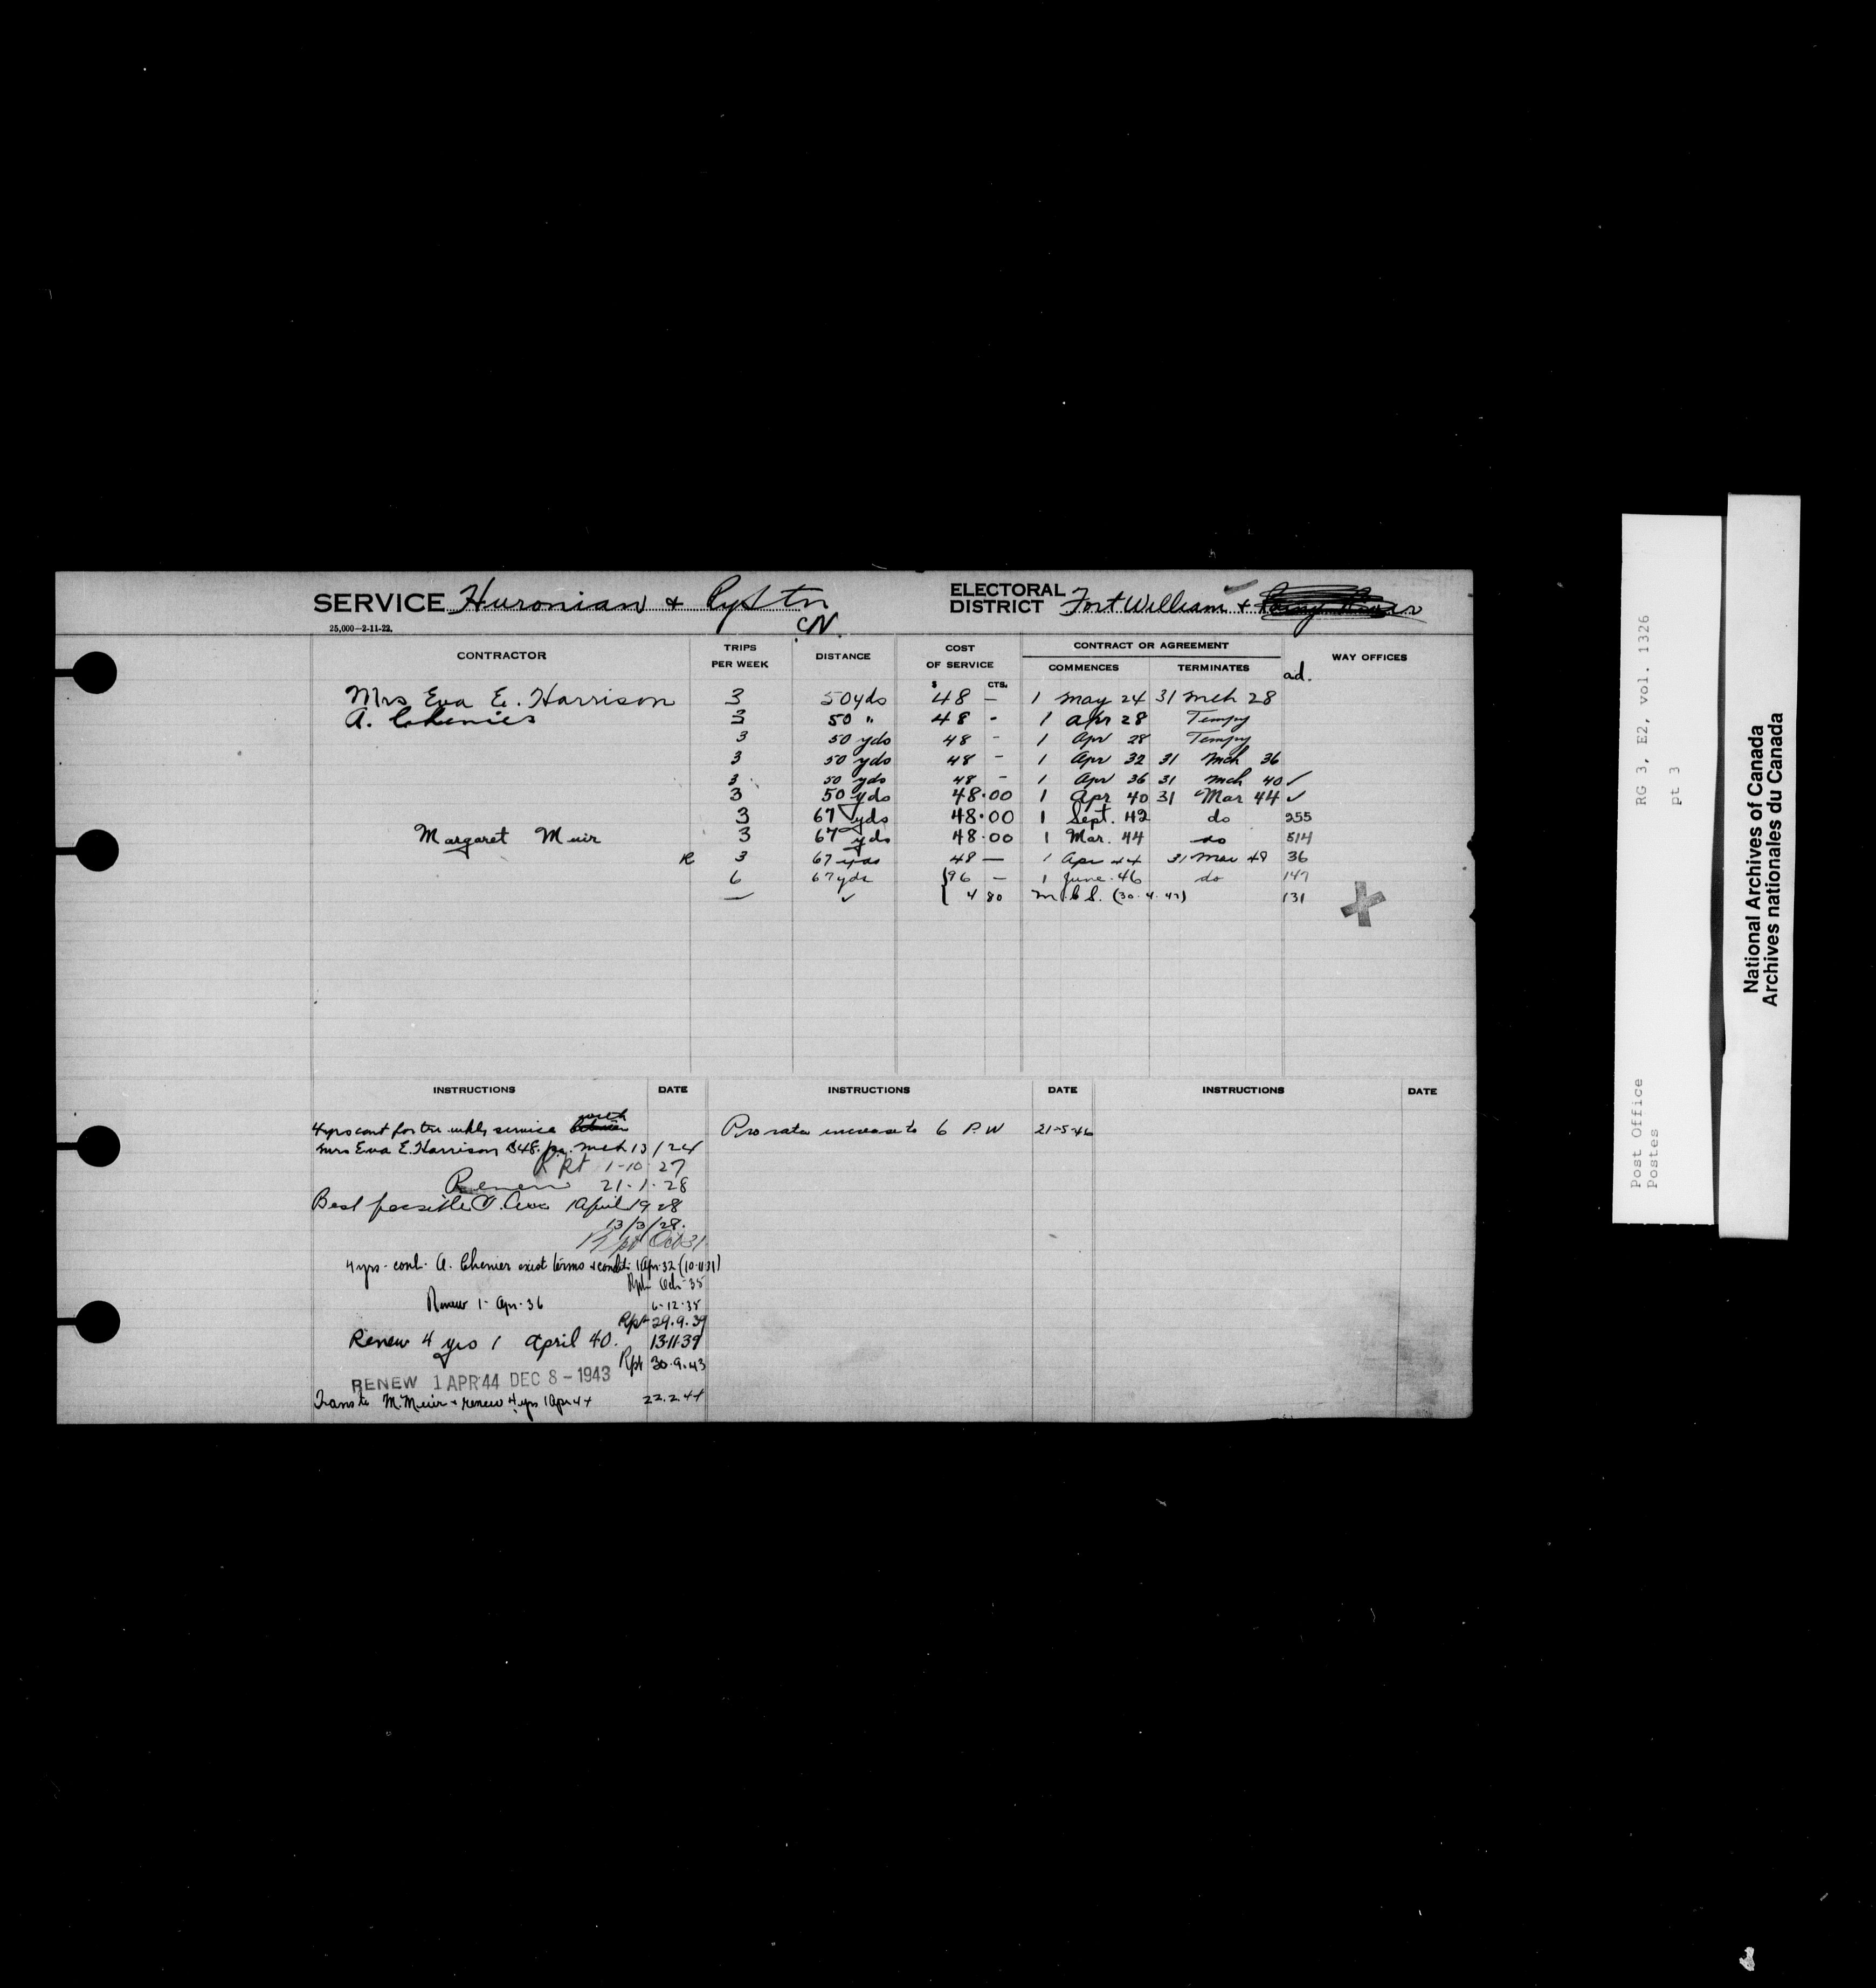 SERVICE Huronian & Ry Stn ELECTORAL DISTRICT Fort William &
25,000—2-11-22. CN.
CONTRACTOR TRIPS PER WEEK DISTANCE COST OF SERVICE CONTRACT OR AGREEMENT WAY OFFICES
$ CTS. COMMENCES TERMINATES ad.
Mrs Eva E. Harrison 3 50 yds 48 — 1 May 24 31 Mch 28
A. Chenier 3 50 " 48 - 1 Apr 28 Tempy
3 50 yds 48 - 1 Apr 28 Tempy
3 50 yds 48 - 1 Apr 32 31 Mch 36
3 50 yds 48 - 1 Apr 36 31 Mch 40 ✓
3 50 yds 48.00 1 Apr 40 31 Mar 44 ✓
3 67 yds 48.00 1 Sept. 42 do 255
Margaret Muir 3 67 yds 48.00 1 Mar. 44 do 514
R 3 67 yds 48 — 1 Apr 44 31 Mar 48 36
6 67 yds 96 — 1 June. 46 do 147
— ✓ 4 80 M.C.S. (30.4.47) 131
INSTRUCTIONS DATE INSTRUCTIONS DATE INSTRUCTIONS DATE
4 yrs cont for tri-wkly service with Pro rata increase to 6 P.W 21-5-46
Mrs Eva E. Harrison $48. pa. Mch 13/24
Rpt 1-10-27
Renew 21-1-28
Best possible 1 April 1928
13/3/28.
Rpt Oct 31
4 yrs. cont. A. Chenier exist terms & condit. 1 Apr. 32 (10.11.31)
Rpt Oct-35
Renew 1-Apr-36 6-12-35
Rpt 29.9.39
Renew 4 yrs 1 April 40. 13.11.39
Rpt 30.9.43
RENEW 1 APR 44 DEC 8-1943
Trans to M. Muir & renew 4 yrs 1 Apr 44 22.2.44
RG 3, E2, vol. 1326
pt 3
Post Office
Postes
National Archives of Canada
Archives nationales du Canada